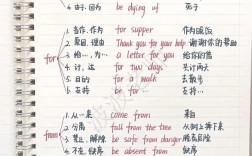 4. 由于、因为 be dying of 死于
for
1. 当作、作为 for supper 作为晚饭
2. 原因、理由 Thank you for your help 谢谢你的帮助
3. 给…、为… a letter for you 给你的信
4. 计、达 for two days 共计两天
5. 目的 for a walk 去散步
6. 在持 be for
from
1. 从…来 come from 来自
2. 分离 fall from the tree 从树上掉下来
3. 禁止、解除 be safe from danger
4. 不在、缺席 be absent from